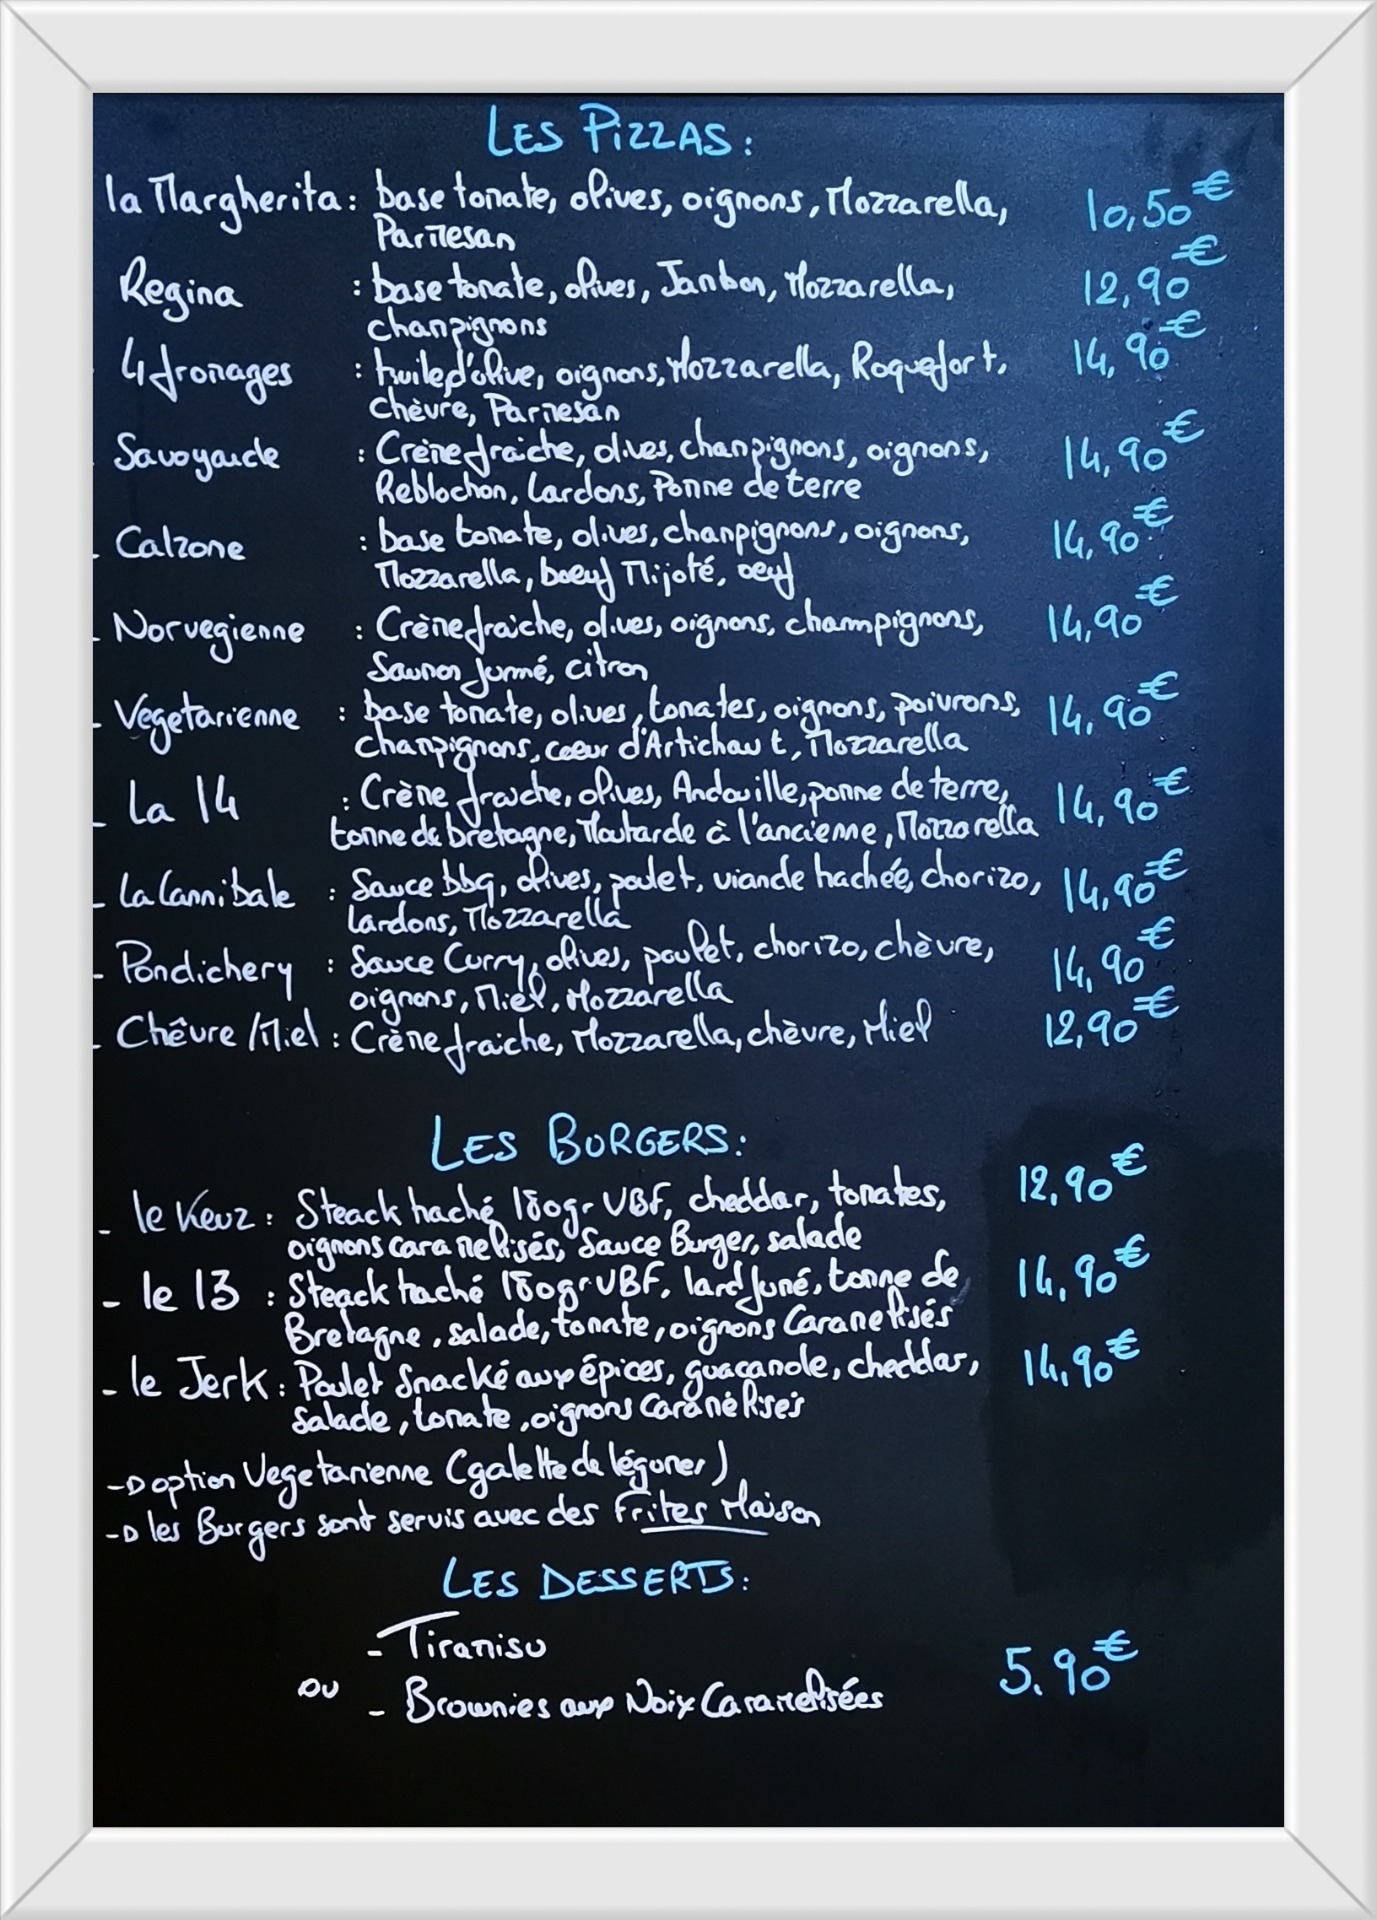 LES PIZZAS:
la Margherita: base tomate, olives, oignons, Mozzarella, 10,50€
Parmesan
Regina : base tomate, olives, Jambon, Mozzarella, 12,90€
champignons
4 fromages : huile d'olive, oignons, Mozzarella, Roquefort, 14,90€
chèvre, Parmesan
Savoyarde : Crème fraiche, olives, champignons, oignons, 14,90€
Reblochon, lardons, Pomme de terre
- Calzone : base tomate, olives, champignons, oignons, 14,90€
Mozzarella, boeuf Mijoté, oeuf
- Norvegienne : Crème fraiche, olives, oignons, champignons, 14,90€
Saumon fumé, citron
- Végetarienne : base tomate, olives, tomates, oignons, poivrons, 14,90€
champignons, coeur d'Artichaut, Mozzarella
- La 14 : Crème fraiche, olives, Andouille, pomme de terre, 14,90€
tomme de bretagne, Moutarde à l'ancienne, Mozzarella
- La Cannibale : Sauce bbq, olives, poulet, viande hachée, chorizo, 14,90€
lardons, Mozzarella
- Pondichery : Sauce Curry, olives, poulet, chorizo, chèvre, 14,90€
oignons, Miel, Mozzarella
- Chêvre/Miel : Crème fraiche, Mozzarella, chèvre, Miel 12,90€
LES BURGERS:
- le Keuz : Steack haché 180gr VBF, cheddar, tomates, 12,90€
oignons caramelisés, Sauce Burger, salade
- le 13 : Steack haché 180gr VBF, lard fumé, tomme de 14,90€
Bretagne, salade, tomate, oignons Caramelisés
- le Jerk : Poulet Snacké aux épices, guacamole, cheddar, 14,90€
Salade, tomate, oignons Caramélisés
-> option Vegetarienne (galette de légumes)
-> les Burgers sont servis avec des Frites Maison
LES DESSERTS:
- Tiramisu
ou 5.90€
- Brownies aux Noix Caramelisées